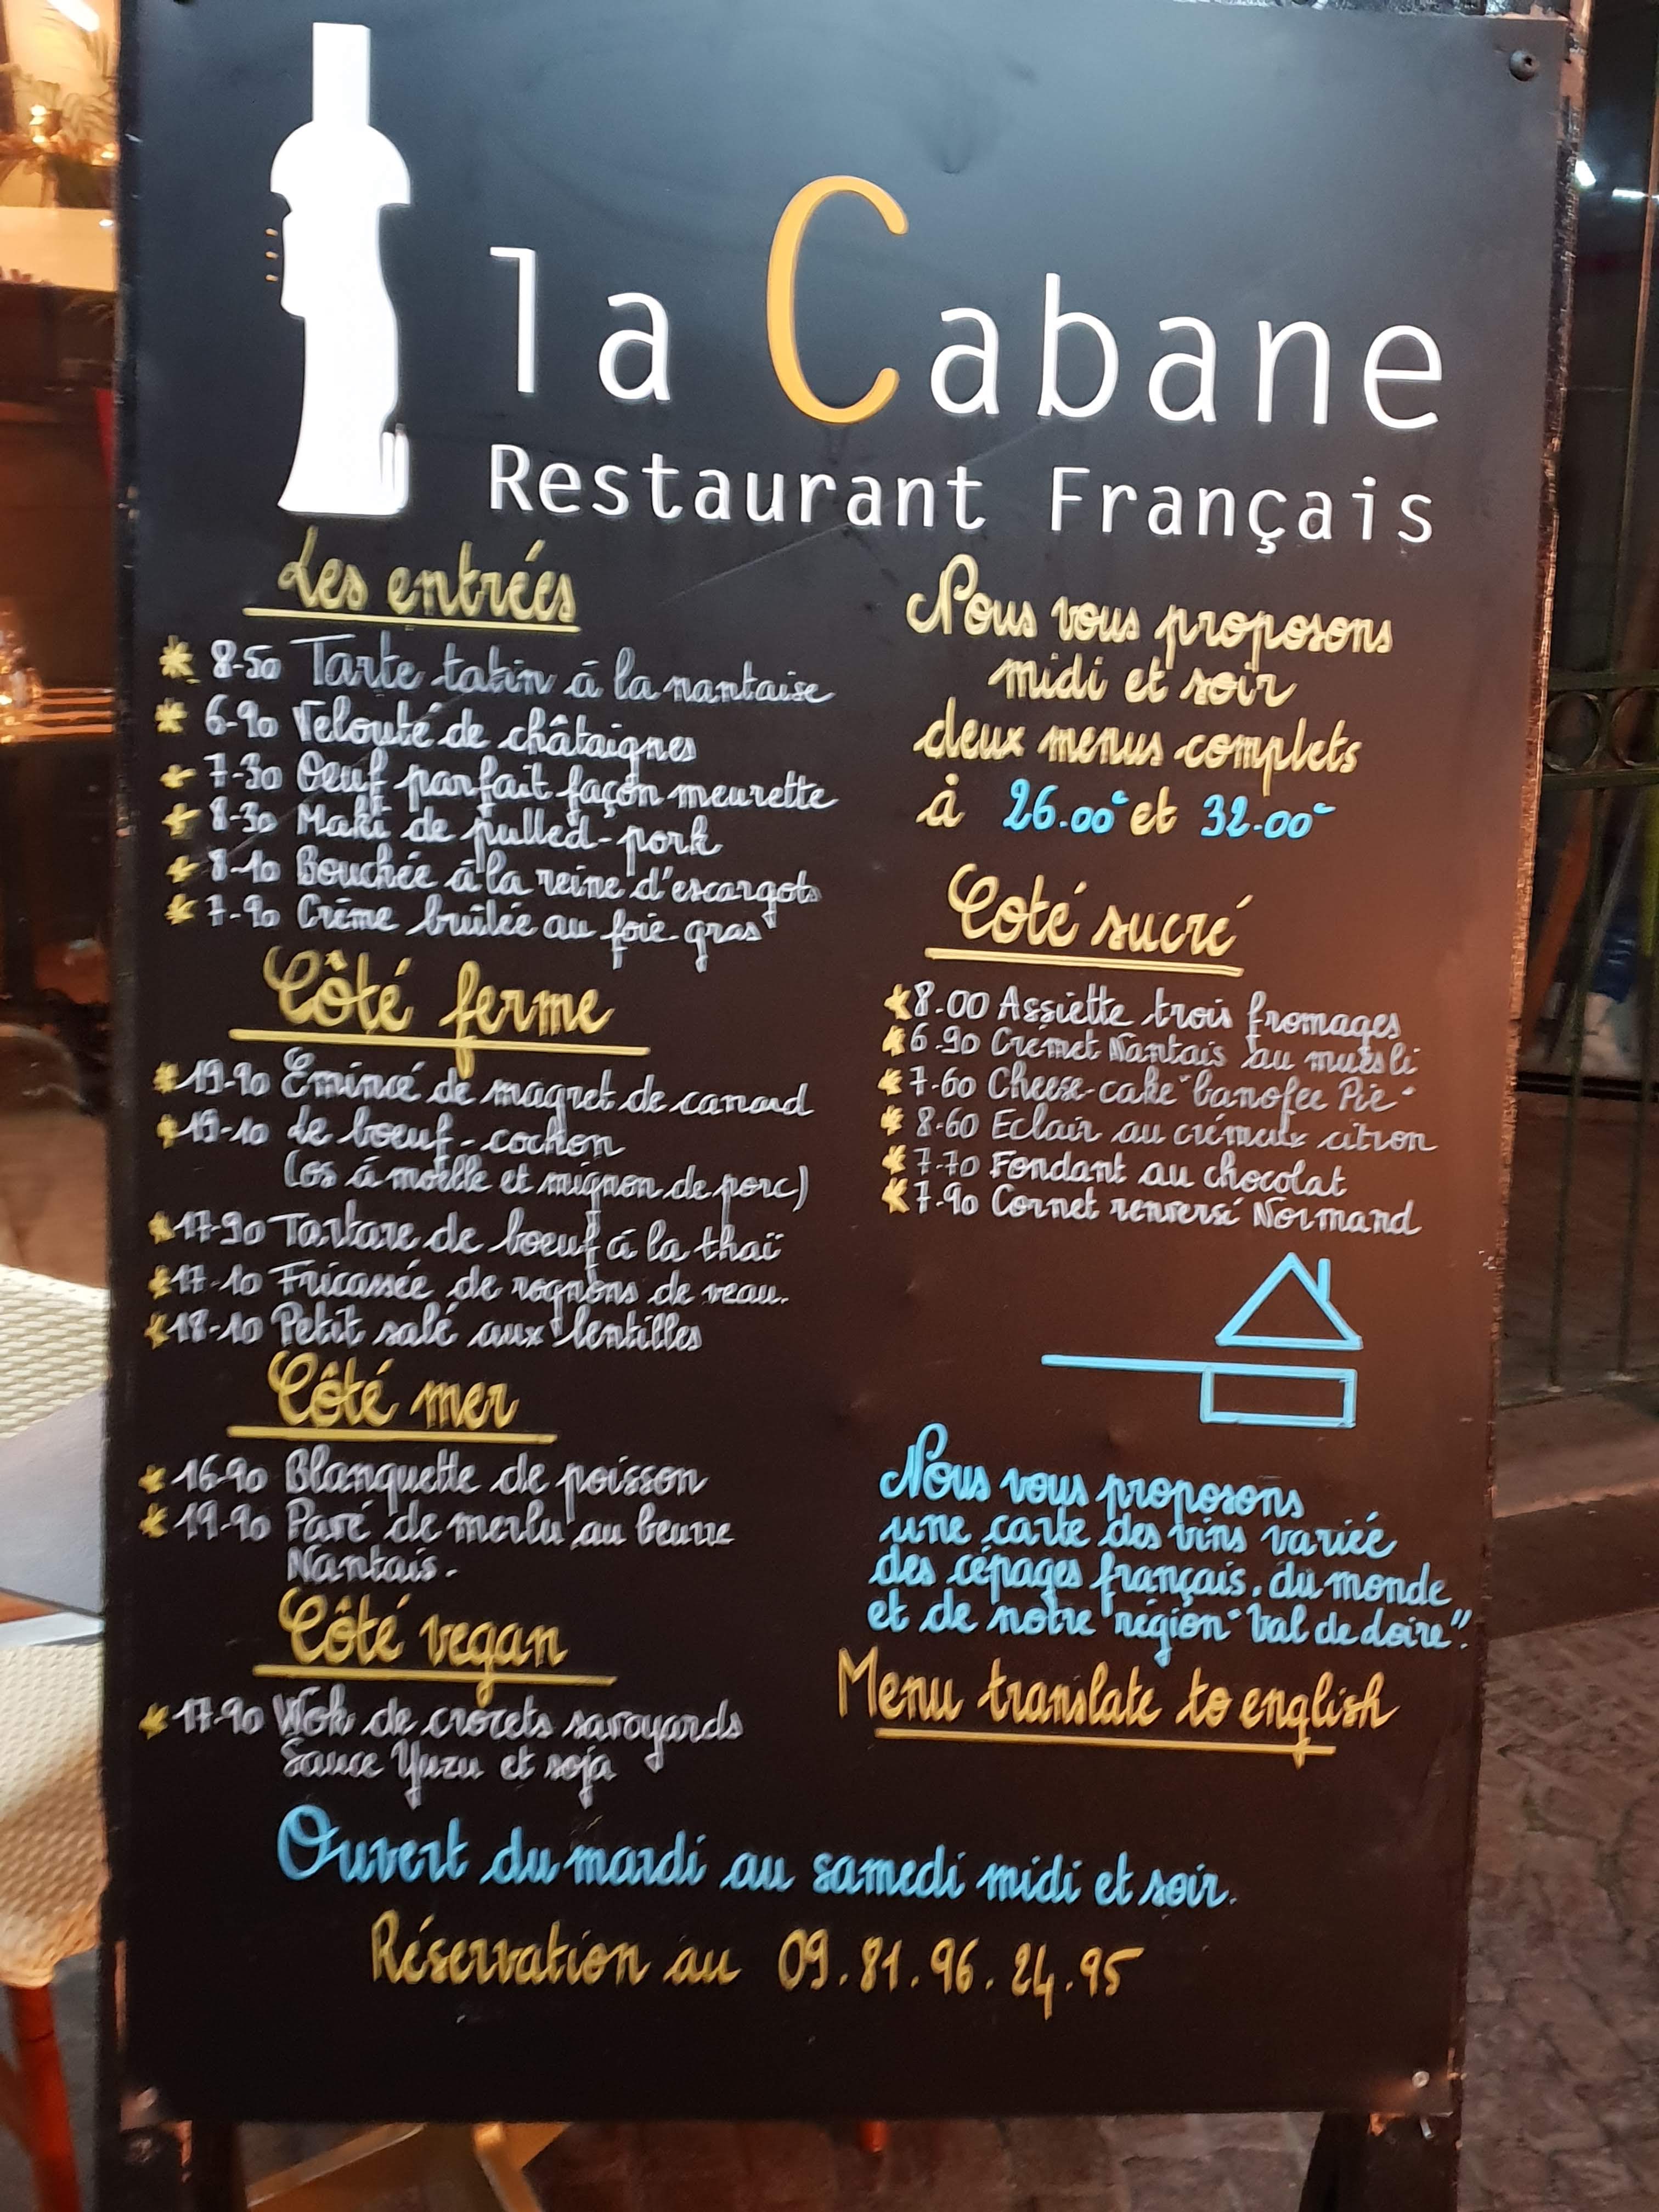 la Cabane
Restaurant Français
Les entrées
8-50 Tarte tatin à la nantaise
6-90 Velouté de châtaignes
7-30 Oeuf parfait façon meurette
8-30 Maki de pulled-pork
8-10 Bouchée à la reine d'escargots
7-90 Crème brûlée au foie gras
Côté ferme
19-90 Emincé de magret de canard
19-10 Le boeuf-cochon
(os à moëlle et mignon de porc)
17-90 Tartare de boeuf à la thaï
17-10 Fricassée de rognons de veau.
18-10 Petit salé aux lentilles
Côté mer
16-90 Blanquette de poisson
19-90 Pavé de merlu au beurre
Nantais.
Côté vegan
17-90 Wok de crozets savoyards
Sauce Yuzu et soja
Nous vous proposons
midi et soir
deux menus complets
à 26.00€ et 32.00€
Coté sucré
8.00 Assiette trois fromages
6.90 Crémet Nantais au muesli
7-60 Cheese-cake "banofee Pie"
8-60 Eclair au crémeux citron
7-70 Fondant au chocolat
7-90 Cornet renversé Normand
Nous vous proposons
une carte des vins variée
des cépages français, du monde
et de notre région "Val de Loire".
Menu translate to english
Ouvert du mardi au samedi midi et soir.
Réservation au 09.81.96.24.95